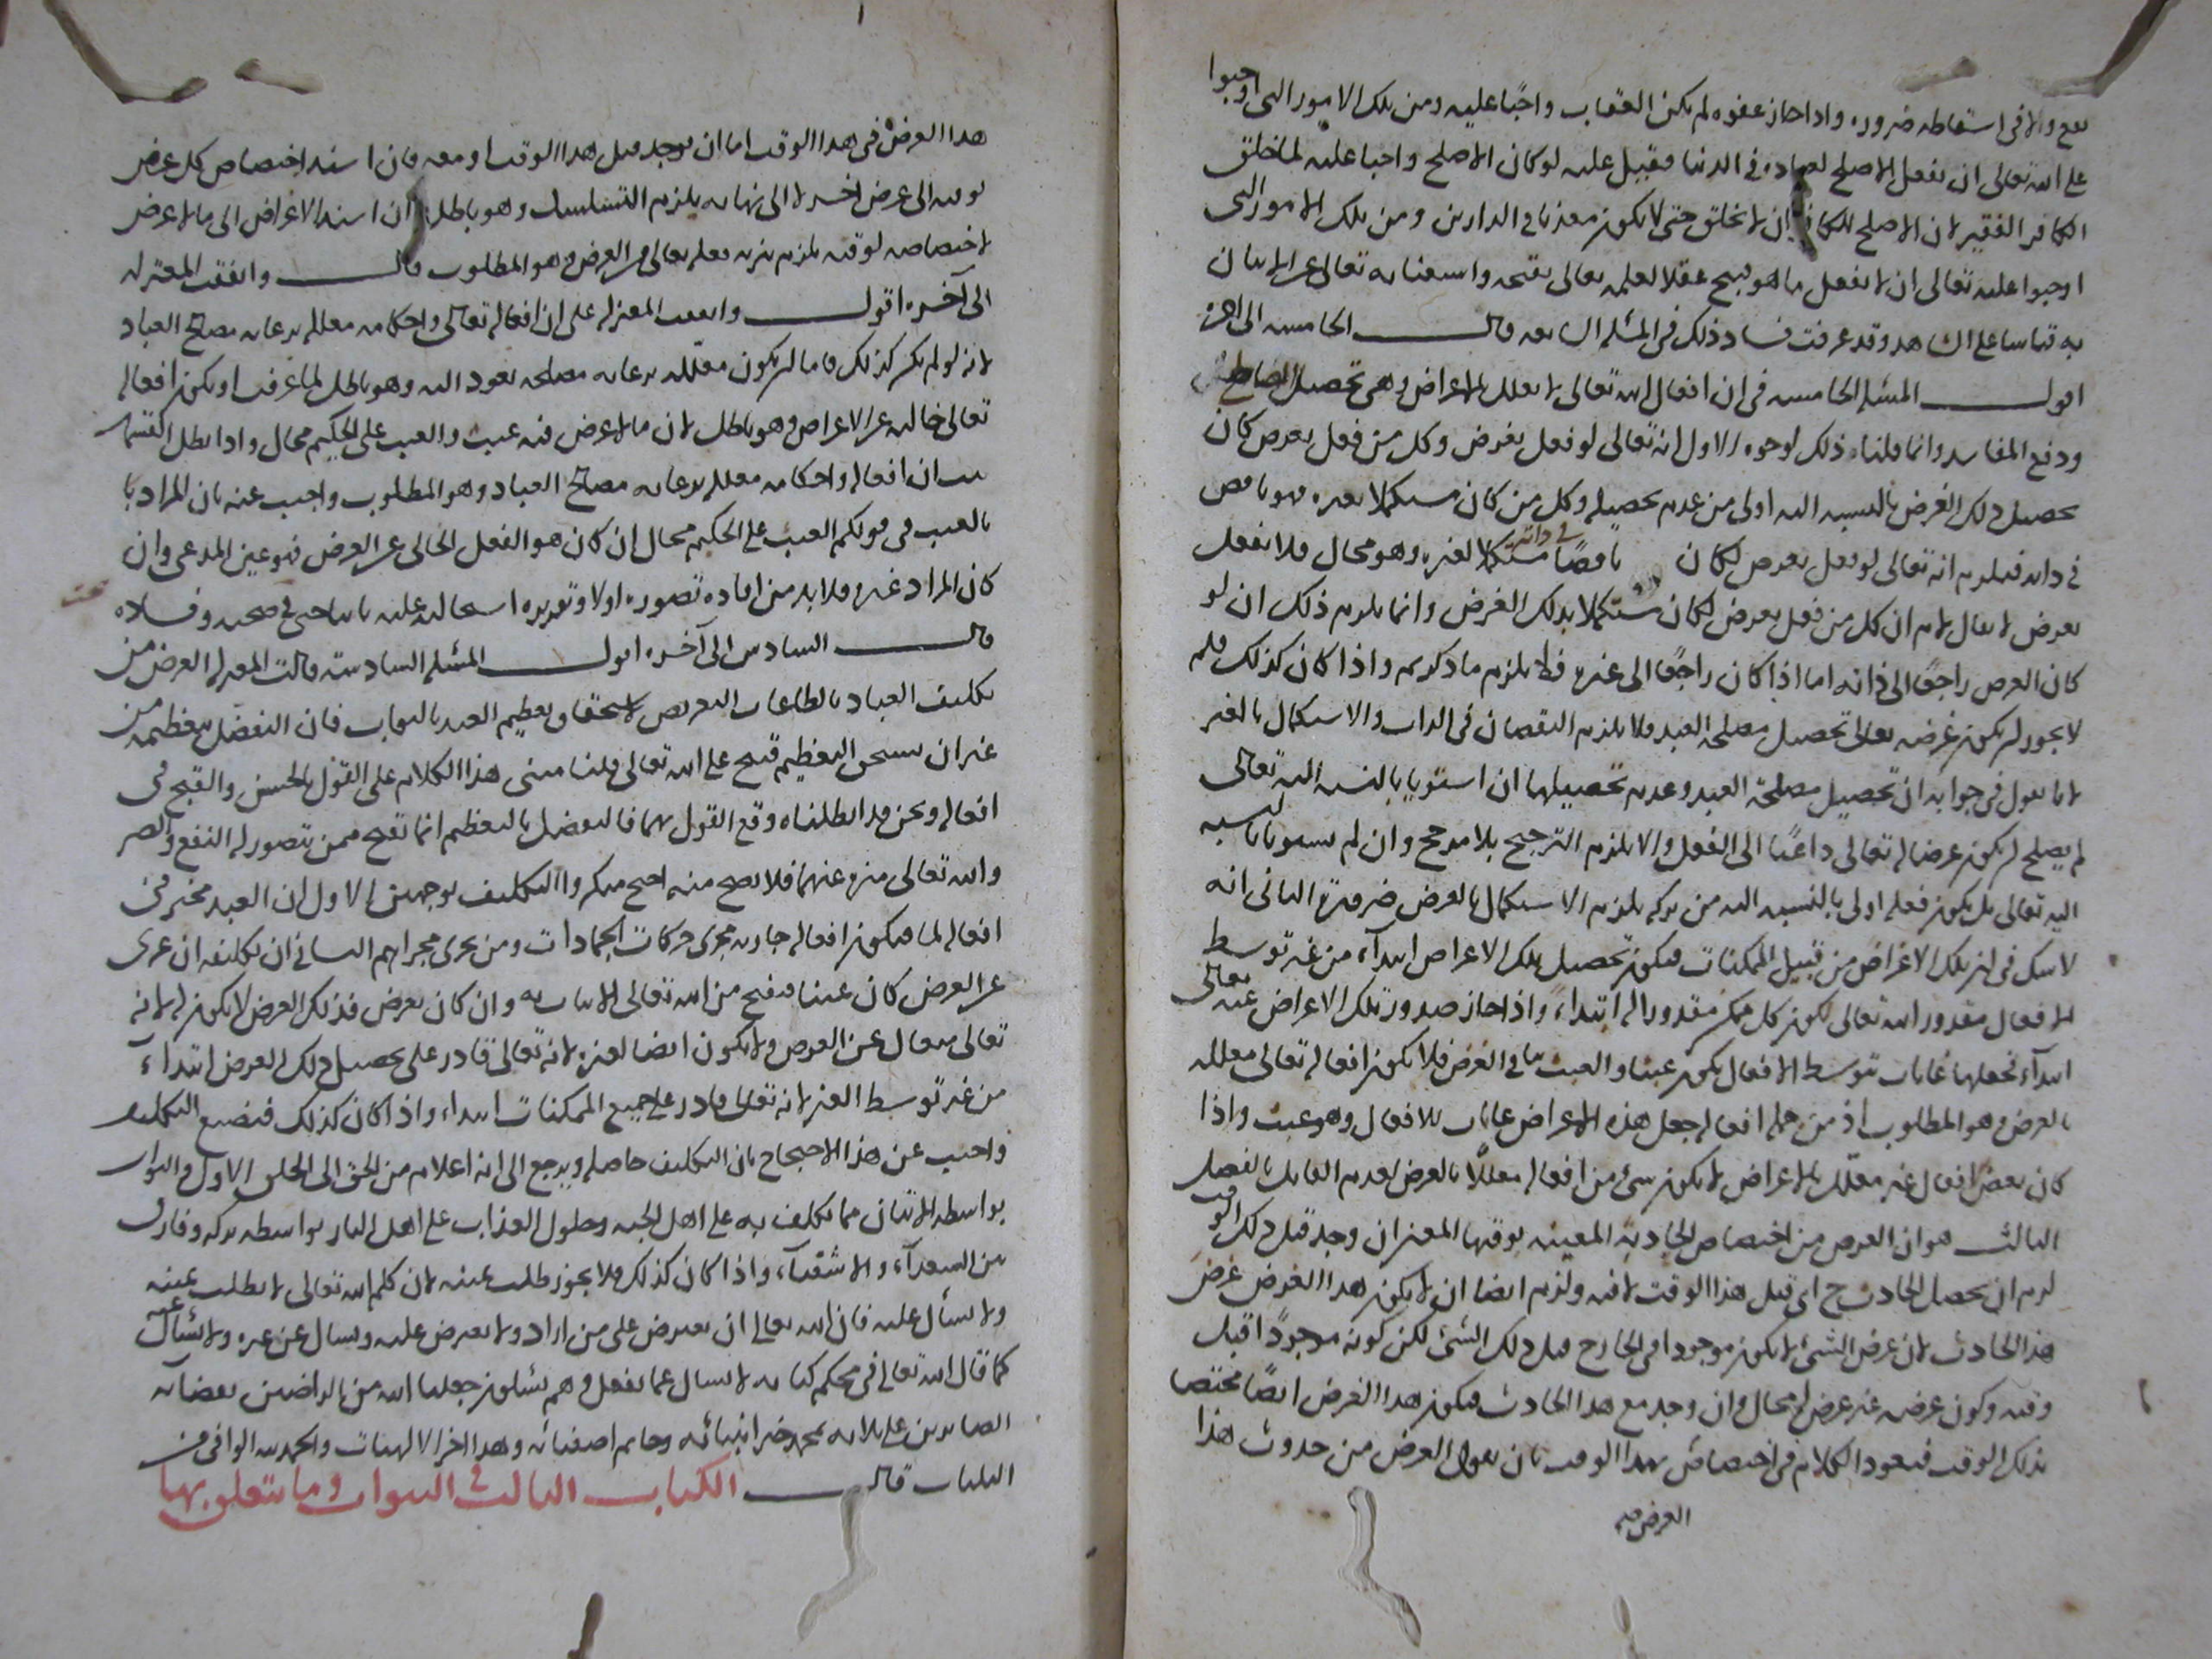 نفع والا في اسقاطه ضرورة واذا جاز عفوه لم يكن العقاب واجبًا عليه ومن تلك الامور التي اوجبوا
على الله تعالى ان يفعل الاصلح لعباده في الدنيا فقيل عليه لو كان الاصلح واجبا عليه لما خلق
الكافر الفقير لان الاصلح للكافر ان لا يخلق حتى لا يكون معذبا في الدارين ومن تلك الامور التي
اوجبوا عليه تعالى ان لا يفعل ما هو قبيح عقلا لعلمه تعالى بقبحه واستغنايه تعالى عن الاتيان
به قياسا على الشاهد وقد عرفت فساد ذلك في المسئلة السابعة قال الخامسة الى اخره
اقول المسئلة الخامسة في ان افعال الله تعالى لا تعلل بالاغراض وهي تحصيل المصالح
ودفع المفاسد وانما قلنا ذلك لوجوه الاول انه تعالى لو فعل بغرض وكل من فعل بغرض كان
تحصيل ذلك الغرض بالنسبة اليه اولى من عدم تحصيله وكل من كان مستكملا بغيره فهو ناقص
في ذاته فيلزم انه تعالى لو فعل بغرض لكان ناقصًا في ذاته مستكملا لغيره وهو محال فلا يفعل
بغرض لا يقال لا نم ان كل من فعل بغرض لكان مستكملا بذلك الغرض وانما يلزم ذلك ان لو
كان الغرض راجعًا الى ذاته اما اذا كان راجعًا الى غيره فلا يلزم ما ذكرتم واذا كان كذلك فلم
لا يجوز ان يكون غرضه تعالى تحصيل مصلحة العبد فلا يلزم النقصان في الذات والاستكمال بالغير
لانا نقول في جوابه ان تحصيل مصلحة العبد وعدم تحصيلها ان استويا بالنسبة اليه تعالى
لم يصلح ان يكون غرضا له تعالى داعيًا الى الفعل والا يلزم الترجيح بلا مرجح وان لم يستويا بالنسبة
اليه تعالى بل يكون فعله اولى بالنسبة اليه من تركه يلزم الاستكمال بالغرض ضرورة الثاني انه
لا شك في ان تلك الاغراض من قبيل الممكنات فيكون تحصيل تلك الاغراض ابتداء من غير توسط
الافعال مقدور الله تعالى لكون كل ممكن مقدورا له ابتداء واذا جاز صدور تلك الاغراض عنه تعالى
ابتدآء فجعلها غايات بتوسط الافعال يكون عبثا والعبث ينافي الغرض فلا يكون افعاله تعالى معللة
بالغرض وهو المطلوب اذ من جملة افعاله جعل هذه الاغراض غايات للافعال وهو عبث واذا
كان بعض افعاله غير معلل بالاغراض لا يكون شئ من افعاله معللًا بالغرض لعدم القايل بالفصل
الثالث هو ان الغرض من اختصاص الحادثة المعينة بوقتها المعين ان وجد قبل ذلك الوقت
لزم ان يحصل الحادث ح اي قبل هذا الوقت لا فيه ولزم ايضا ان لا يكون هذا الغرض غرض
هذا الحادث لان غرض الشئ لا يكون موجودا في الخارج قبل ذلك الشئ لكن كونه موجودًا قبل
وقته وكون غرضه غير غرض له محال وان وجد مع هذا الحادث فيكون هذا الغرض ايضًا مختصا
بذلك الوقت فيعود الكلام في اختصاص بهذا الوقت بان يقول الغرض من حدوث هذا
الغرض فيه
هذا الغرض في هذا الوقت اما ان يوجد قبل هذا الوقت او معه فان اسند اختصاص كل غرض
بوقته الى غرض اخر لا الى نهاية يلزم التسلسل وهو باطل وان اسند الاغراض الى ما لا غرض
لاختصاصه لوقته يلزم تنزيه فعله تعالى عن الغرض وهو المطلوب قال واتفقت المعتزلة
الى آخره اقول واتفقت المعتزلة على ان افعاله تعالى واحكامه معللة برعاية مصالح العباد
لانه لو لم يكن كذلك فاما ان يكون معللة برعاية مصلحة يعود اليه وهو باطل لما عرفت او يكون افعاله
تعالى خالية عن الاغراض وهو باطل لان ما لا غرض فيه عبث والعبث على الحكيم محال واذا بطل القسمان
ثبت ان افعاله واحكامه معللة برعاية مصالح العباد وهو المطلوب واجيب عنه بان المراد با
بالعبث في قولكم العبث على الحكيم محال ان كان هو الفعل الخالي عن الغرض فهو عين المدعى وان
كان المراد غيره فلا بد من افادة تصوره اولا وتقريره استحالته عليه ثانيا حتى في صحته وفساده
قال السادس الى آخره اقول المسئلة السادسة قالت المعتزلة الغرض من
تكليف العباد بالطاعات التعريض لاستحقاق تعظيم العبد بالثواب فان التفضل بتعظيمه من
غير ان يستحق التعظيم قبيح على الله تعالى قلنا مبنى هذا الكلام على القول بالحسن والقبح في
افعاله ونحن قد ابطلناه وقع القول بهما فالتفضل بالتعظيم انما تقبح ممن يتصور له النفع والضر
والله تعالى منزه عنهما فلا يصح منه احتج منكروا التكليف بوجهين الاول ان العبد مجبر في
افعاله لما فيكون افعاله جارية مجرى حركات الجمادات ومن يجرى مجراهم الثاني ان تكليفه ان عرى
عن الغرض كان عبثا فيقبح من الله تعالى الاتيان به وان كان بغرض فذلك الغرض لا يكون له لانه
تعالى متعال عن الغرض ولا يكون ايضا لغيره لانه تعالى قادر على تحصيل ذلك الغرض ابتداء
من غير توسط الغير لانه تعالى قادر على جميع الممكنات ابتداء واذا كان كذلك فيضيع التكليف
واجيب عن هذا الاحتجاج بان التكليف حاصله ويرجع الى انه اعلام من الحق الى الخلق الاول والثواب
بواسطة الاتيان مما تكلف به على اهل الجنة وحلول العذاب على اهل النار بواسطة تركه وفارق
بين السعدآء والاشقيآء واذا كان كذلك فلا يجوز طلب عينه لان كلم الله تعالى لا يطلب عينه
ولا يسأل عليه فان الله تعالى ان يعترض على من اراد ولا يعترض عليه ويسال عن غيره ولا يسأل عنه
كما قال الله تعالى في محكم كتابه لا يسال عما يفعل وهم يسئلون جعلنا الله من الراضين بقضآئه
الصابرين على بلائه بمحمد خير انبيائه وخاتم اصفيائه وهذا اخر الالهيات والحمد لله الوافي من
البليات قال الكتاب الثالث في النبوات وما يتعلق بها